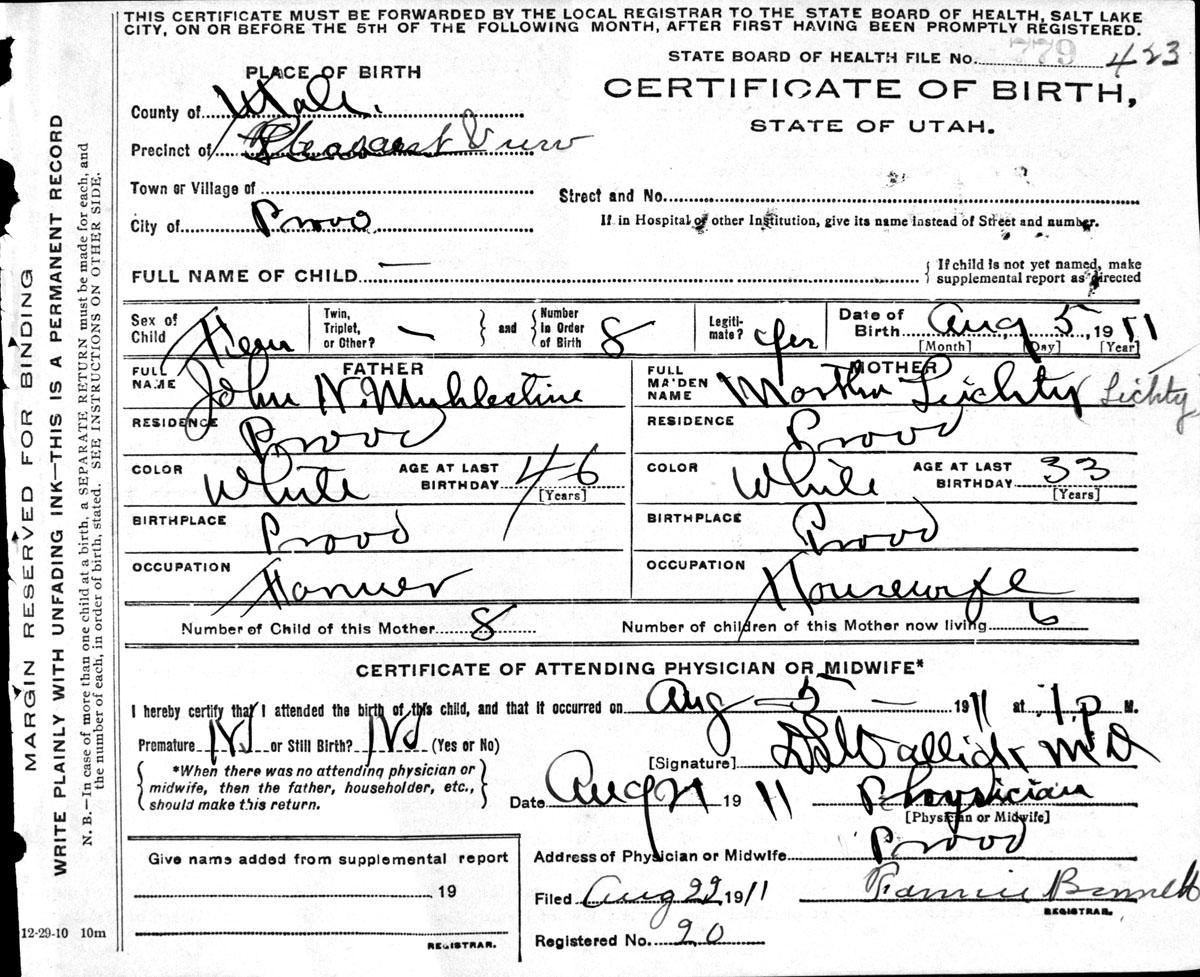 THIS CERTIFICATE MUST BE FORWARDED BY THE LOCAL REGISTRAR TO THE STATE BOARD OF HEALTH, SALT LAKE
CITY, ON OR BEFORE THE 5TH OF THE FOLLOWING MONTH, AFTER FIRST HAVING BEEN PROMPTLY REGISTERED.
STATE BOARD OF HEALTH FILE No. 779 423
PLACE OF BIRTH
CERTIFICATE OF BIRTH,
STATE OF UTAH.
County of Utah.
Precinct of Pleasant View
Town or Village of
Street and No.
City of Provo
If in Hospital or other Institution, give its name instead of Street and number.
FULL NAME OF CHILD —
{ If child is not yet named, make
supplemental report as directed
Sex of Child
Twin, Triplet, or Other? —
} and { Number in Order of Birth 8
Legiti-mate? yes
Date of Birth Aug 5, 1911
[Month] [Day] [Year]
FATHER
FULL NAME John N. Muhlestine
RESIDENCE Provo
COLOR White AGE AT LAST BIRTHDAY 46 [Years]
BIRTHPLACE Provo
OCCUPATION Farmer
MOTHER
FULL MAIDEN NAME Martha Leichty Lichty
RESIDENCE Provo
COLOR White AGE AT LAST BIRTHDAY 33 [Years]
BIRTHPLACE Provo
OCCUPATION Housewife
Number of Child of this Mother 8
Number of children of this Mother now living 6
CERTIFICATE OF ATTENDING PHYSICIAN OR MIDWIFE*
I hereby certify that I attended the birth of this child, and that it occurred on Aug — 5 — 1911 at 1 P M.
Premature No or Still Birth? No (Yes or No)
{ *When there was no attending physician or
midwife, then the father, householder, etc.,
should make this return. }
[Signature] M D
Date Aug 1911 Physician
[Physician or Midwife]
Address of Physician or Midwife Provo
Filed Aug 22 1911 Fannie Bennett
REGISTRAR.
Registered No. 20
Give name added from supplemental report
19
REGISTRAR.
12-29-10 10m
MARGIN RESERVED FOR BINDING
WRITE PLAINLY WITH UNFADING INK—THIS IS A PERMANENT RECORD
N. B.—In case of more than one child at a birth, a SEPARATE RETURN must be made for each, and
the number of each, in order of birth, stated. SEE INSTRUCTIONS ON OTHER SIDE.